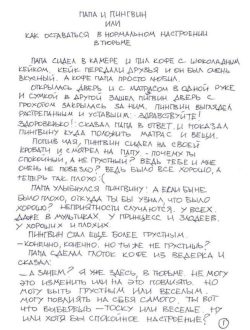 ПАПА И ПИНГВИН
ИЛИ
КАК ОСТАВАТЬСЯ В НОРМАЛЬНОМ НАСТРОЕНИИ
В ТЮРЬМЕ
ПАПА СИДЕЛ В КАМЕРЕ И ПИЛ КОФЕ С ШОКОЛАДНЫМ
КЕЙКОМ. КЕЙК ПЕРЕДАЛИ ДРУЗЬЯ И ОН БЫЛ ОЧЕНЬ
ВКУСНЫЙ. А КОФЕ ПАПА ПРОСТО ЛЮБИЛ.
ОТКРЫЛАСЬ ДВЕРЬ И С МАТРАСОМ В ОДНОЙ РУКЕ
И СУМКОЙ В ДРУГОЙ ЗАШЕЛ ПИНГВИН. ДВЕРЬ С
ГРОХОТОМ ЗАКРЫЛАСЬ ЗА НИМ. ПИНГВИН ВЫГЛЯДЕЛ
РАСТРЕПАННЫМ И УСТАВШИМ. ЗДРАВСТВУЙТЕ!
ЗДОРОВЕНЬКО! - СКАЗАЛ ПАПА В ОТВЕТ И ПОКАЗАЛ
ПИНГВИНУ КУДА ПОЛОЖИТЬ МАТРАС И ВЕЩИ.
ПОПИВ ЧАЯ, ПИНГВИН СИДЕЛ НА СВОЕЙ
КРОВАТИ И СМОТРЕЛ НА ПАПУ. - ПОЧЕМУ ТЫ
СПОКОЙНЫЙ, А НЕ ГРУСТНЫЙ? ВЕДЬ ТЕБЕ И МНЕ
ОЧЕНЬ НЕ ПОВЕЗЛО? ВЕДЬ БЫЛО ВСЕ ХОРОШО, А
ТЕПЕРЬ ТАК ПЛОХО.
ПАПА УЛЫБНУЛСЯ ПИНГВИНУ: - А ЕСЛИ БЫ НЕ
БЫЛО ПЛОХО, ОТКУДА ТЫ БЫ УЗНАЛ, ЧТО БЫЛО
ХОРОШО? НЕПРИЯТНОСТИ СЛУЧАЮТСЯ, У ВСЕХ.
ДАЖЕ В МУЛЬТИКАХ. У ПРИНЦЕСС И ЗЛОДЕЕВ.
У ХОРОШИХ И ПЛОХИХ.
ПИНГВИН СТАЛ ЕЩЕ БОЛЕЕ ГРУСТНЫМ.
- КОНЕЧНО, КОНЕЧНО. НО ТЫ ЖЕ НЕ ГРУСТИШЬ?
ПАПА СДЕЛАЛ ГЛОТОК КОФЕ ИЗ ВЕДЕРКА И
СКАЗАЛ:
- А ЗАЧЕМ? Я УЖЕ ЗДЕСЬ, В ТЮРЬМЕ. НЕ МОГУ
ЭТО ИЗМЕНИТЬ ИЛИ НА ЭТО ПОВЛИЯТЬ. НО
МОГУ БЫТЬ ГРУСТНЫМ ИЛИ ВЕСЕЛЫМ.
МОГУ ПОВЛИЯТЬ НА СЕБЯ САМОГО. ТЫ ВОТ
ЧТО ВЫБИРАЕШЬ - ТОСКУ ИЛИ ВЕСЕЛЬЕ? НУ
ИЛИ ХОТЯ БЫ СПОКОЙНОЕ НАСТРОЕНИЕ?
1